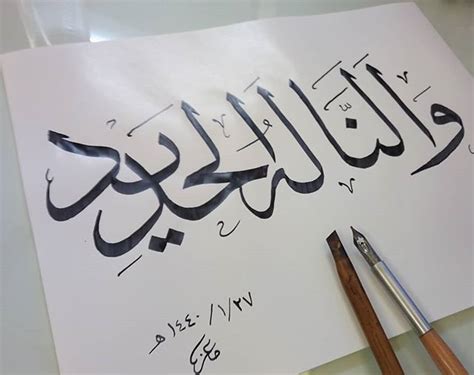 وَالَنَّا لَهُ الحديد
٢٧ / ١ / ١٤٤٠ هـ